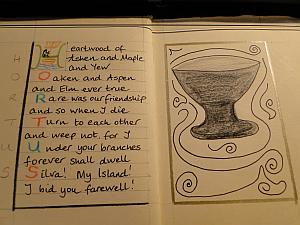 H
O
R
T
U
S
Heartwood of
Ashen and Maple
and Yew
Oaken and Aspen
and Elm ever true
Rare was our friendship
and so when I die
Turn to each other
and weep not, for I
Under your branches
forever shall dwell
Silva! My Island!
I bid you farewell!